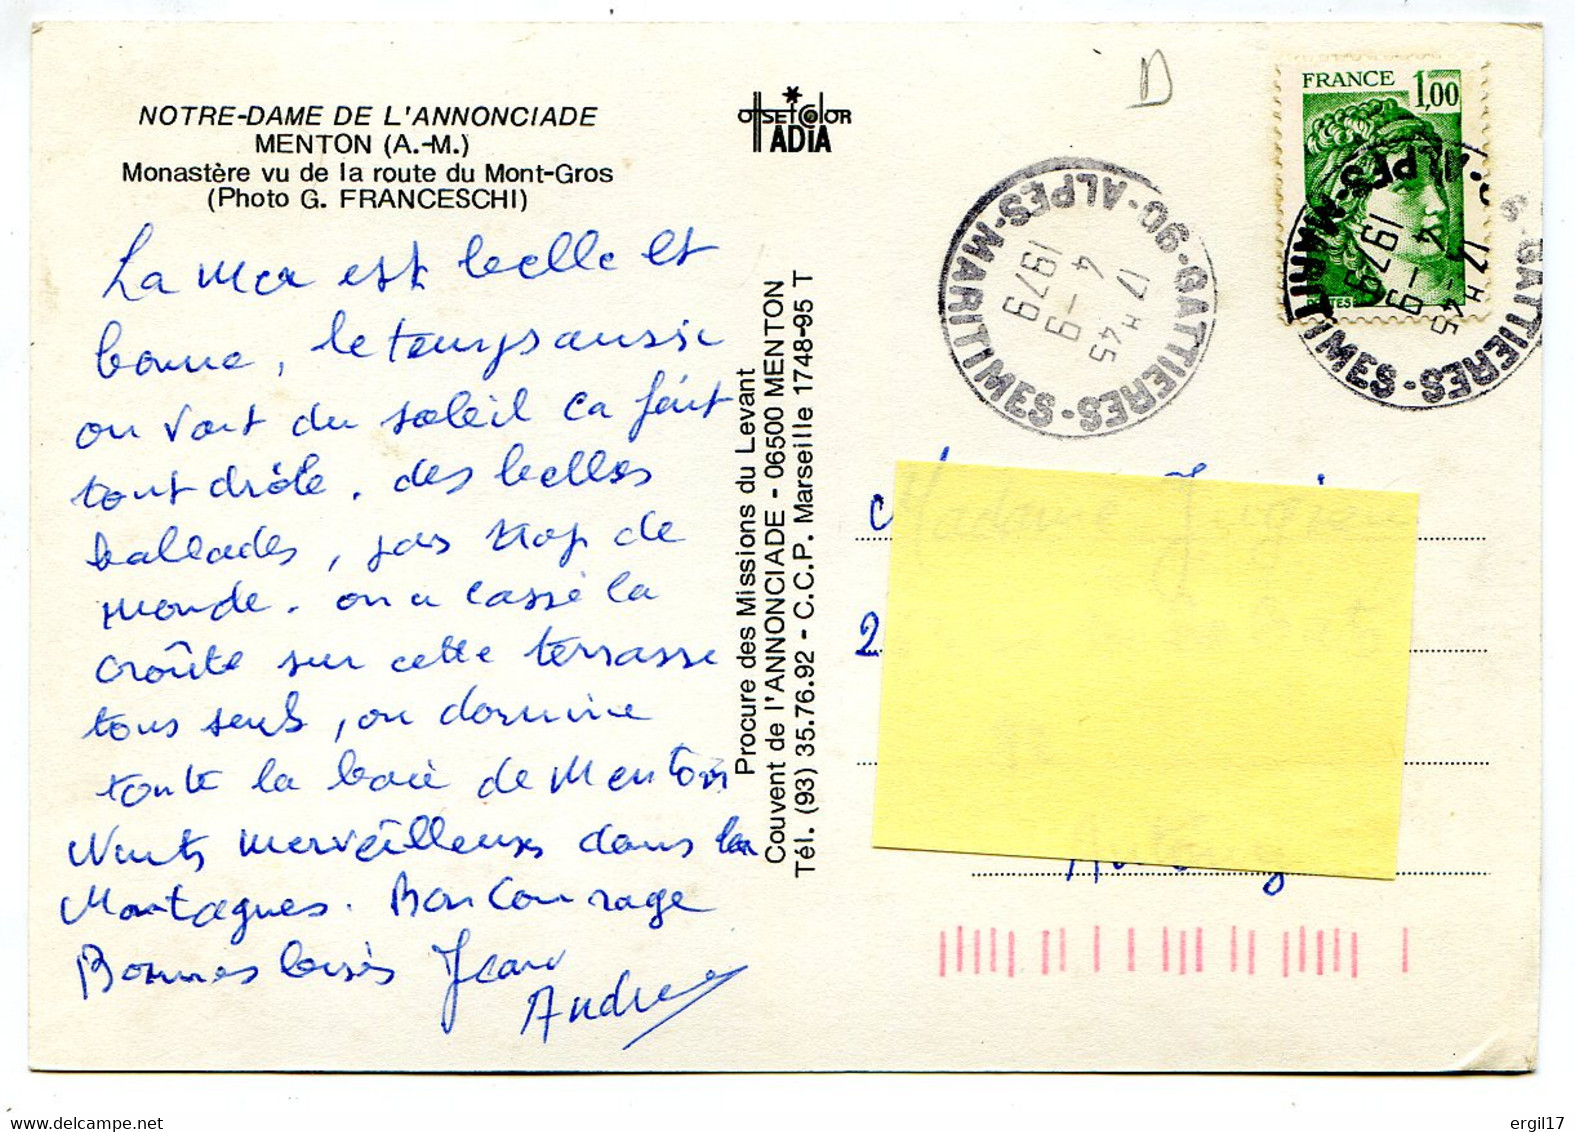 NOTRE-DAME DE L'ANNONCIADE
MENTON (A.-M.)
Monastère vu de la route du Mont-Gros
(Photo G. FRANCESCHI)
La mer est belle et
bonne, le temps aussi
on vont du soleil ca fait
tout drôle. des belles
ballades, pas trop de
monde. on a cassé la
croûte sur cette terrasse
tous seuls, on domine
toute la baie de Menton
Nuits merveilleuses dans la
Montagnes. Bon Courage
Bonnes loisirs Jean
Andre
OffsetColor
ADIA
Procure des Missions du Levant
Couvent de l'ANNONCIADE - 06500 MENTON
Tél. (93) 35.76.92 - C.C.P. Marseille 1748-95 T
D
FRANCE 1,00
POSTES
06-GATTIERES-ALPES-MARITIMES
17H45
4-9
1979
GATTIERES-ALPES-MARITIMES
17H45
4-9
1979
Madame
2
ergil17